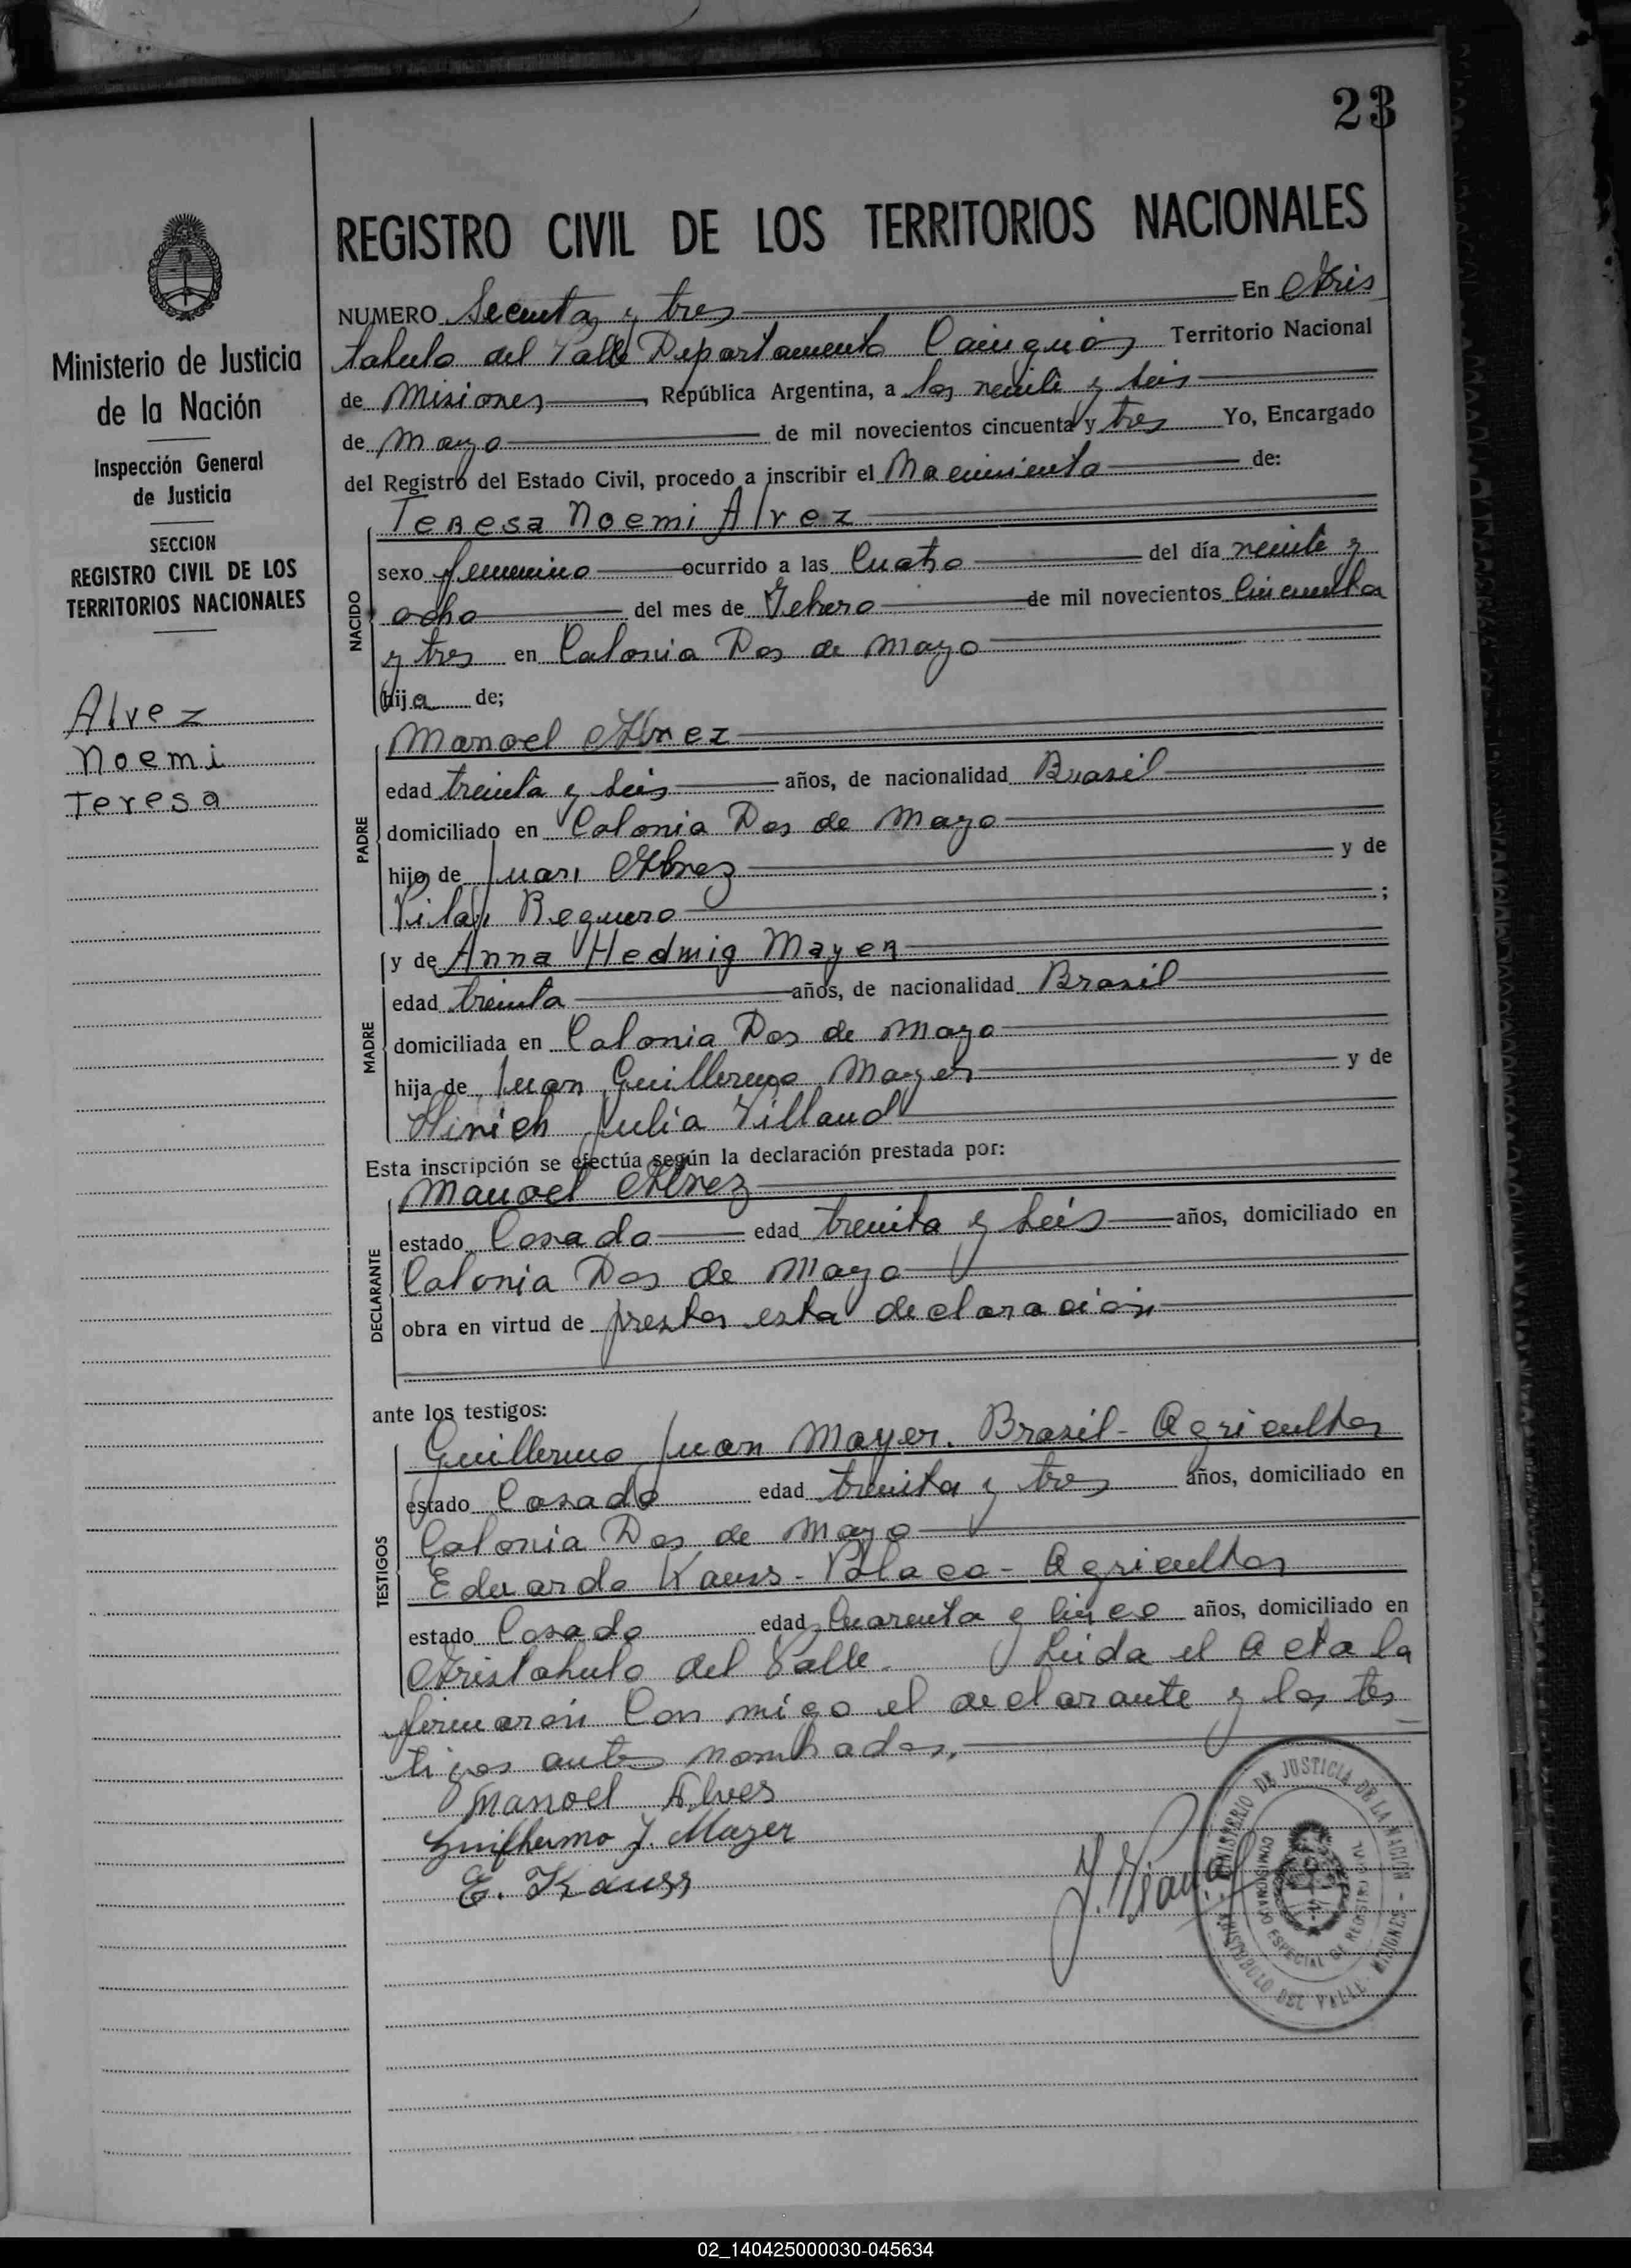 23
REGISTRO CIVIL DE LOS TERRITORIOS NACIONALES
Ministerio de Justicia
de la Nación
Inspección General
de Justicia
SECCION
REGISTRO CIVIL DE LOS
TERRITORIOS NACIONALES
Alvez
Noemi
Teresa
NUMERO y tres En Aris
tobulo del Valle Departamento Cainguás Territorio Nacional
de Misiones, República Argentina, a los veinte y seis
de Mayo de mil novecientos cincuenta y tres Yo, Encargado
del Registro del Estado Civil, procedo a inscribir el Nacimiento de:
NACIDO
Teresa Noemi Alvez
sexo femenino ocurrido a las Cuatro del día veinte y
ocho del mes de Febrero de mil novecientos Cincuenta
y tres en Colonia Dos de Mayo
hija de;
PADRE
Manoel Alvez
edad treinta y seis años, de nacionalidad Brasil
domiciliado en Colonia Dos de Mayo
hijo de Juan Alvez y de
Reguero;
MADRE
y de Anna Hedwig Mayer
edad treinta años, de nacionalidad Brasil
domiciliada en Colonia Dos de Mayo
hija de Juan Guillermo Mayer y de
Julia
Esta inscripción se efectúa según la declaración prestada por:
DECLARANTE
Manoel Alvez
estado Casado edad treinta y seis años, domiciliado en
Colonia Dos de Mayo
obra en virtud de prestar esta declaración
ante los testigos:
TESTIGOS
Guillermo Juan Mayer. Brasil - Agricultor
estado Casado edad treinta y tres años, domiciliado en
Colonia Dos de Mayo
Eduardo Kauss - Polaco - Agricultor
estado Casado edad Cuarenta y Cinco años, domiciliado en
Aristobulo del Valle. Leida el Acta la
firmarón Con migo el declarante y los tes
tigos antes nombrados.
Manoel Alves
Guilhermo J. Mayer
E. Kauss
MINISTERIO DE JUSTICIA DE LA NACION -
COMISIONADO ESPECIAL DE REGISTRO CIVIL
ARISTOBULO DEL VALLE - MISIONES
02_140425000030-045634